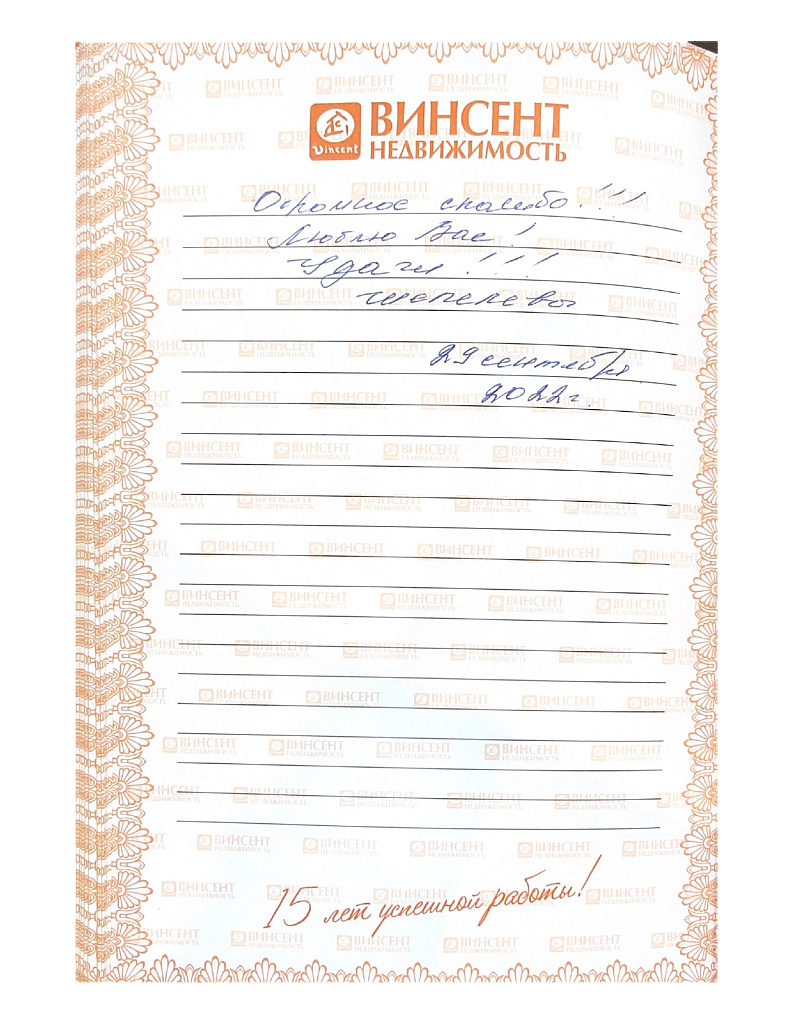 Vincent
ВИНСЕНТ
НЕДВИЖИМОСТЬ
Огромное спасибо!!!
Люблю Вас!
Удачи!!!
Шепелевы
29 сентября
2022 г.
15 лет успешной работы!